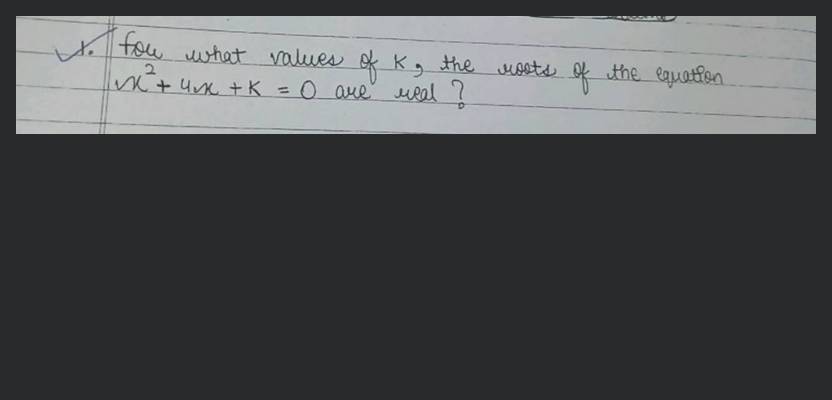 1. for what values of K, the roots of the equation
x² + 4x + K = 0 are real ?